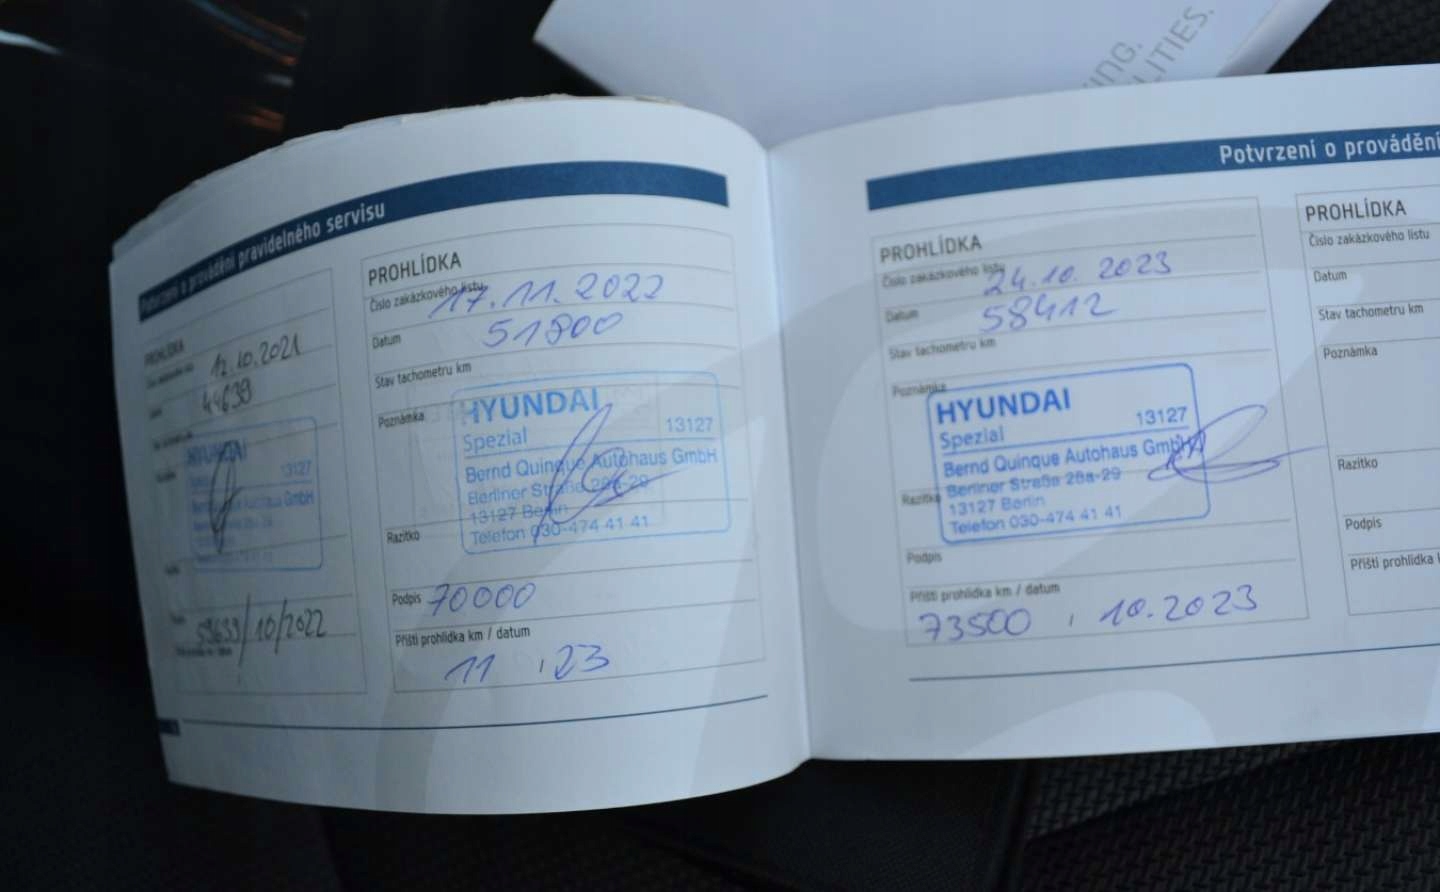 ING.
LITIES.
Potvrzení o provádění pravidelného servisu
PROHLÍDKA
12.10.2021
44639
HYUNDAI
13127
Autohaus GmbH
59639/10/2022
PROHLÍDKA
Číslo zakázkového listu
17.11.2022
Datum
51800
Stav tachometru km
Poznámka
HYUNDAI
Spezial 13127
Bernd Quinque Autohaus GmbH
Berliner Straße 28a-29
13127 Berlin
Telefon 030-474 41 41
Razítko
Podpis
70000
Příští prohlídka km / datum
11 , 23
Potvrzení o provádění
PROHLÍDKA
Číslo zakázkového listu
24.10.2023
Datum
58412
Stav tachometru km
Poznámka
HYUNDAI
Spezial 13127
Bernd Quinque Autohaus GmbH
Razítko
Berliner Straße 28a-29
13127 Berlin
Telefon 030-474 41 41
Podpis
Příští prohlídka km / datum
73500 , 10.2023
PROHLÍDKA
Číslo zakázkového listu
Datum
Stav tachometru km
Poznámka
Razítko
Podpis
Příští prohlídka